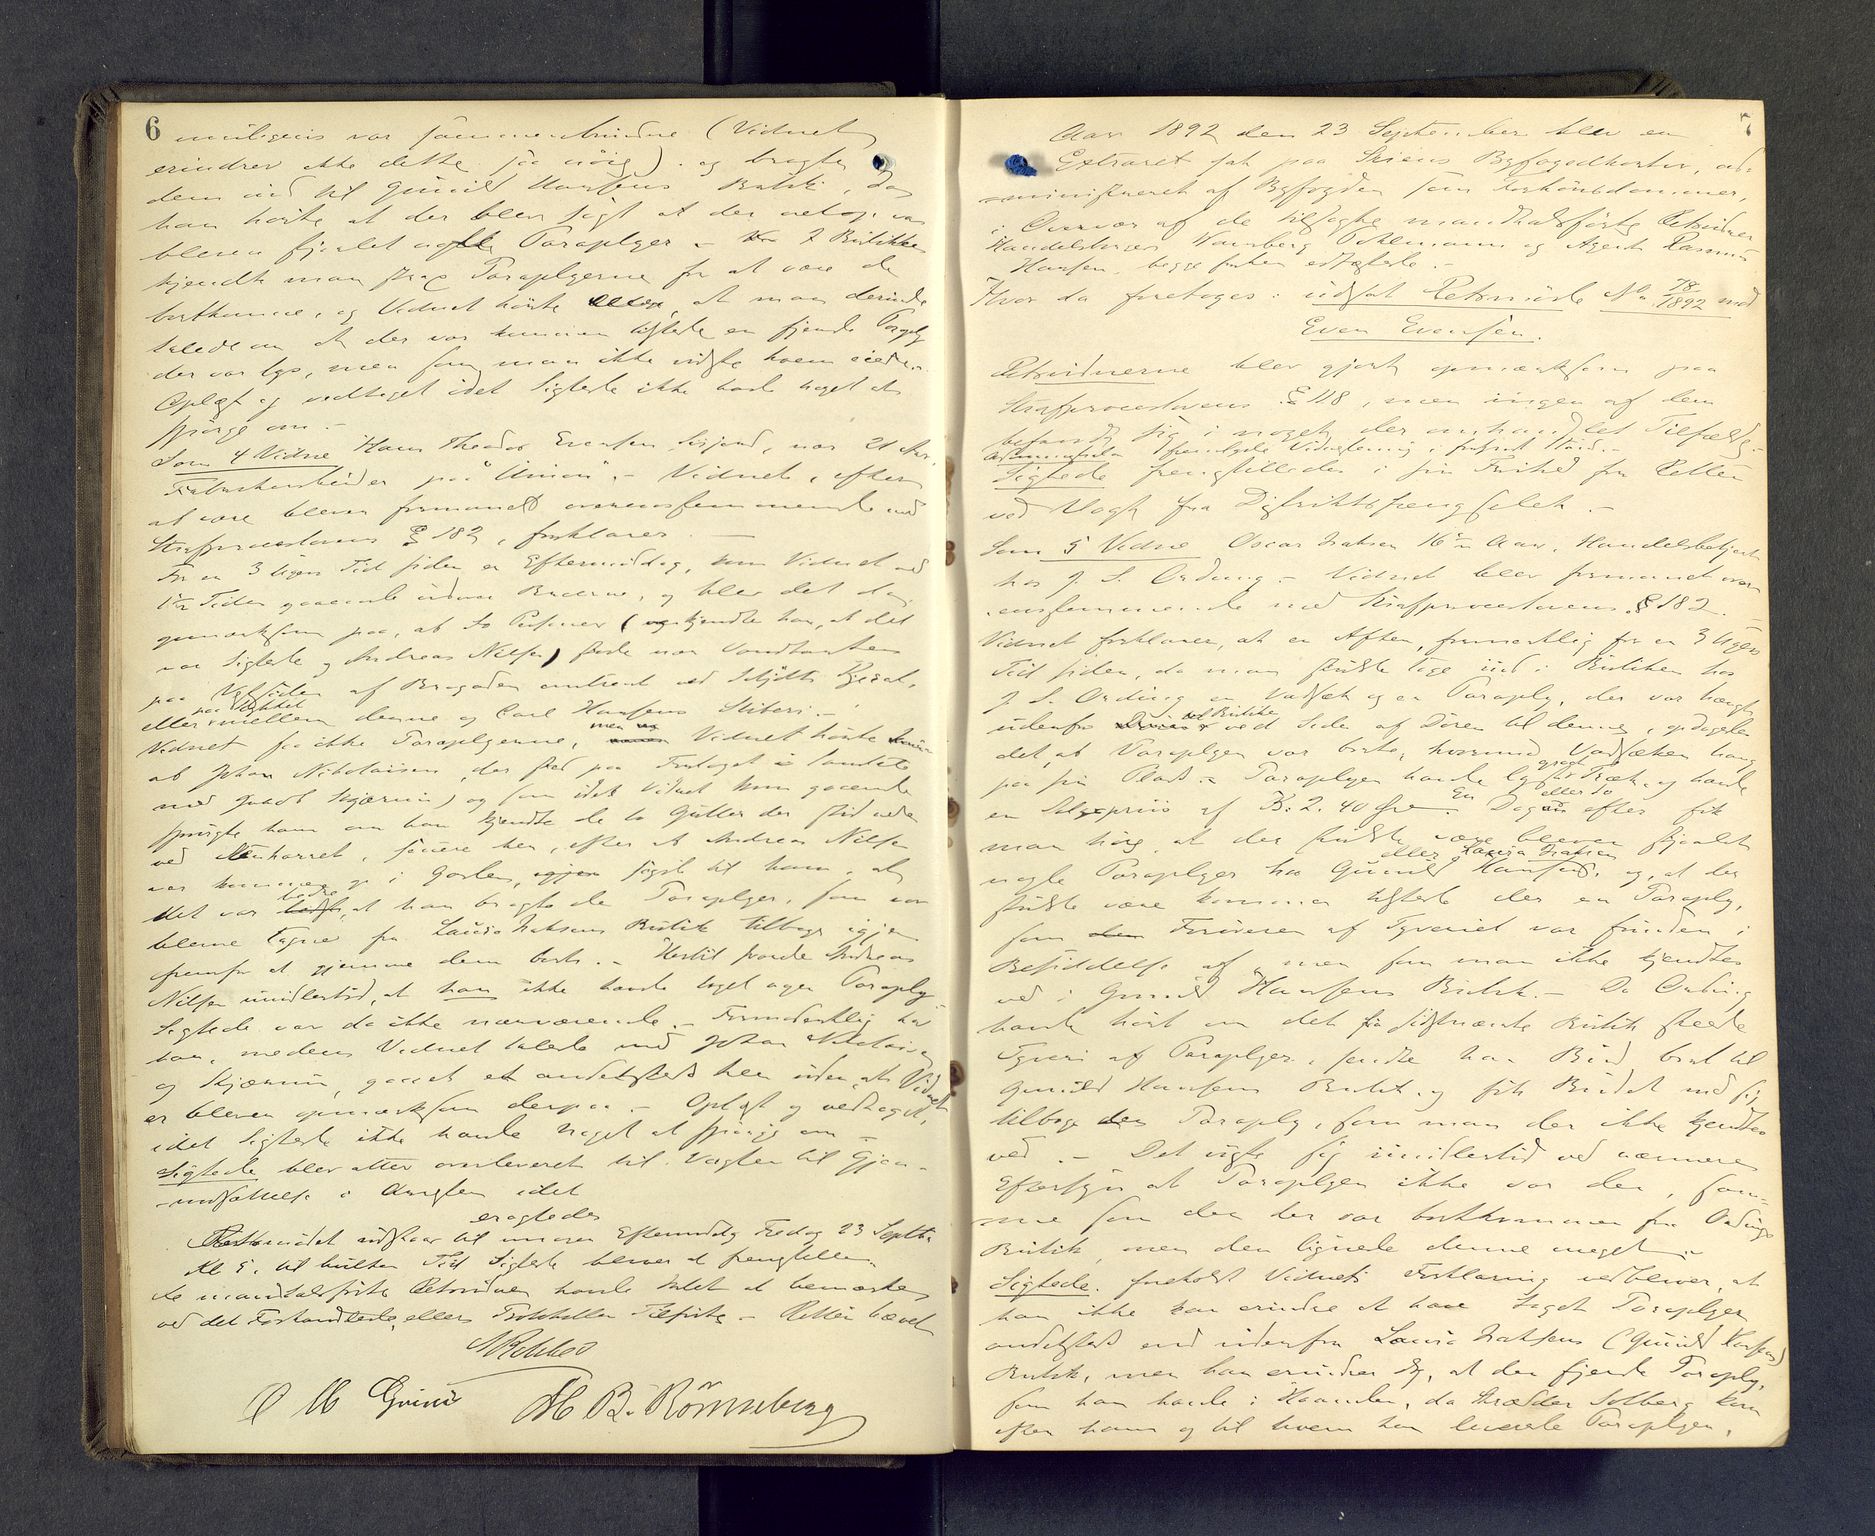 6
muligens var sammenbundne (Vidnet
erindrer ikke dette saa nöie) og bragte
dem ind til Gunild Hansens Butik, da
han hörte at der blev sagt at der netop var
bleven stjaalet nogle Paraplyer. I Butikken
kjendte man strax Paraplyerne for at være de
bortkomne, og Vidnet hörte, at man derinde
talede om at der var kommen tilstede en fjerde Paraply
der var lys, men som man ikke vidste hvem eiede.
Oplæst og vedtaget idet Sigtede ikke havde noget at
spörge om. -
Som 4 Vidne Hans Theodor Evensen, 21 Aar,
Fabrikarbeider paa "Union". - Vidnet, efter
at være bleven formanet overensstemmende med
Strafproceslovens § 182, forklarer. -
For en 3 Ugers Tid siden en Eftermiddag, kom Vidnet ved
Tiden gaaende Byen, og blev da
opmærksom paa, at to Personer (kjendte han, at det
var Sigtede og Andreas Nilsen) stode nær Vandtanken
paa af Brogaden omtrent ved
eller paa Stykket mellem denne og Carl Hansens -
Vidnet saa ikke Paraplyerne, men Vidnet hörte
at Johan Nikolaisen, der stod paa Fortoget
med Jakob Skjærum) og som idet Vidnet kom gaaende
spurgte ham om han kjendte de to Gutter der stod nede
ved, senere hen, efter at Andreas Nilsen
var kommen op i Gaden, sagt til ham, at
det var bedre, at han bragte de Paraplyer, som var
blevne tagne fra Laura Isaksens Butik tilbage igjen
fremfor at gjemme dem bort. - Hertil svarede Andreas
Nilsen imidlertid, at han ikke havde taget nogen Paraply
Sigtede var da ikke nærværende. - Formodentlig har
han, medens Vidnet talede med Johan Nikolaisen
og Skjærum, gaaet et andetsteds hen uden at Vidnet
er bleven opmærksom derpaa. - Oplæst og vedtaget,
idet Sigtede ikke havde Noget at spörge om -
Sigtede blev atter overleveret til Vagten til Gjen-
-indsættelse i Arresten idet
eragtedes
Retsmödet udstaar til imorgen Eftermiddag Fredag 23 Septbr.
Kl 5, til hvilken Tid Sigtede bliver at fremstille.
De mandtalsförte Retsvidner havde Intet at bemærke
ved det Forhandlede, ellers Protokollen Tilförte. - Retten hævet
M B. Römseberg
7
Aar 1892 den 23 September blev en
Extraret sat paa Skiens Byfogedkontor, ad-
-ministreret af Byfogden som Forhörsdommer,
i Overvær af de tilsagte mandtalsförte Retsvidner
Handelsborger Pohlmann og Agent Rasmus
Hansen, begge forhen edfæstede. -
Hvor da foretoges: udsat Retsmöde No 78/1892 mod
Even Evensen.
Retsvidnerne blev gjort opmærksom paa
Strafproceslovens § 118, men ingen af dem
befandt sig i noget der omhandlet Tilfælde. -
Sigtede fremstilledes i fri Tilstand for Retten
ved Vagt fra Distriktsfængselet. -
Som 5 Vidne Oscar Isaksen 16 1/2 Aar, Handelsbetjent
hos J. S. Ording. - Vidnet blev formanet over-
-ensstemmende med Strafproceslovens § 182.
Vidnet forklarer, at en Aften, formentlig for en 3 Ugers
Tid siden, da man skulde tage ind i Butiken hos
J. S. Ording en Vadsæk og en Paraply, der var hængt
udenfor ved Siden af Dören til denne Butik, opdagedes
det, at Paraplyen var borte, hvorimod Vadsæken hang
paa sin Plads. - Paraplyen havde lyst Træk og havde
en Udsalgspriis af Kr. 2.40 Öre. En eller to Dage efter fik
man höre at der skulde være bleven stjaalet
nogle Paraplyer hos Gunild Hansen eller Laura Isaksen og, at der
skulde være kommen tilstede der en Paraply,
som Foröveren af Tyveriet var funden i
Besiddelse af men som man ikke kjendtes
ved i Gunild Hansens Butik. - Da Ording
havde hört om det fra sidstnævnte Butik skeede
Tyveri af Paraplyer, sendte han Bud bort til
Gunild Hansens Butik og fik Budet med sig
tilbage den Paraply, som man der ikke kjendtes
ved. - Det viste sig imidlertid ved nærmere
Eftersyn at Paraplyen ikke var den, sam-
me som den der var bortkommen fra Ordings
Butik, men den lignede denne meget. -
Sigtede foreholdt Vidnets Forklaring vedbliver, at
han ikke kan erindre at have taget Paraplyer
andetsteds end udenfor Laura Isaksens (Gunild Hansens)
Butik, men han erindrer dog, at den fjerde Paraply,
som han havde i Haanden, da Skrædder Solberg kom
efter ham og til hvem han leverede Paraplyen,